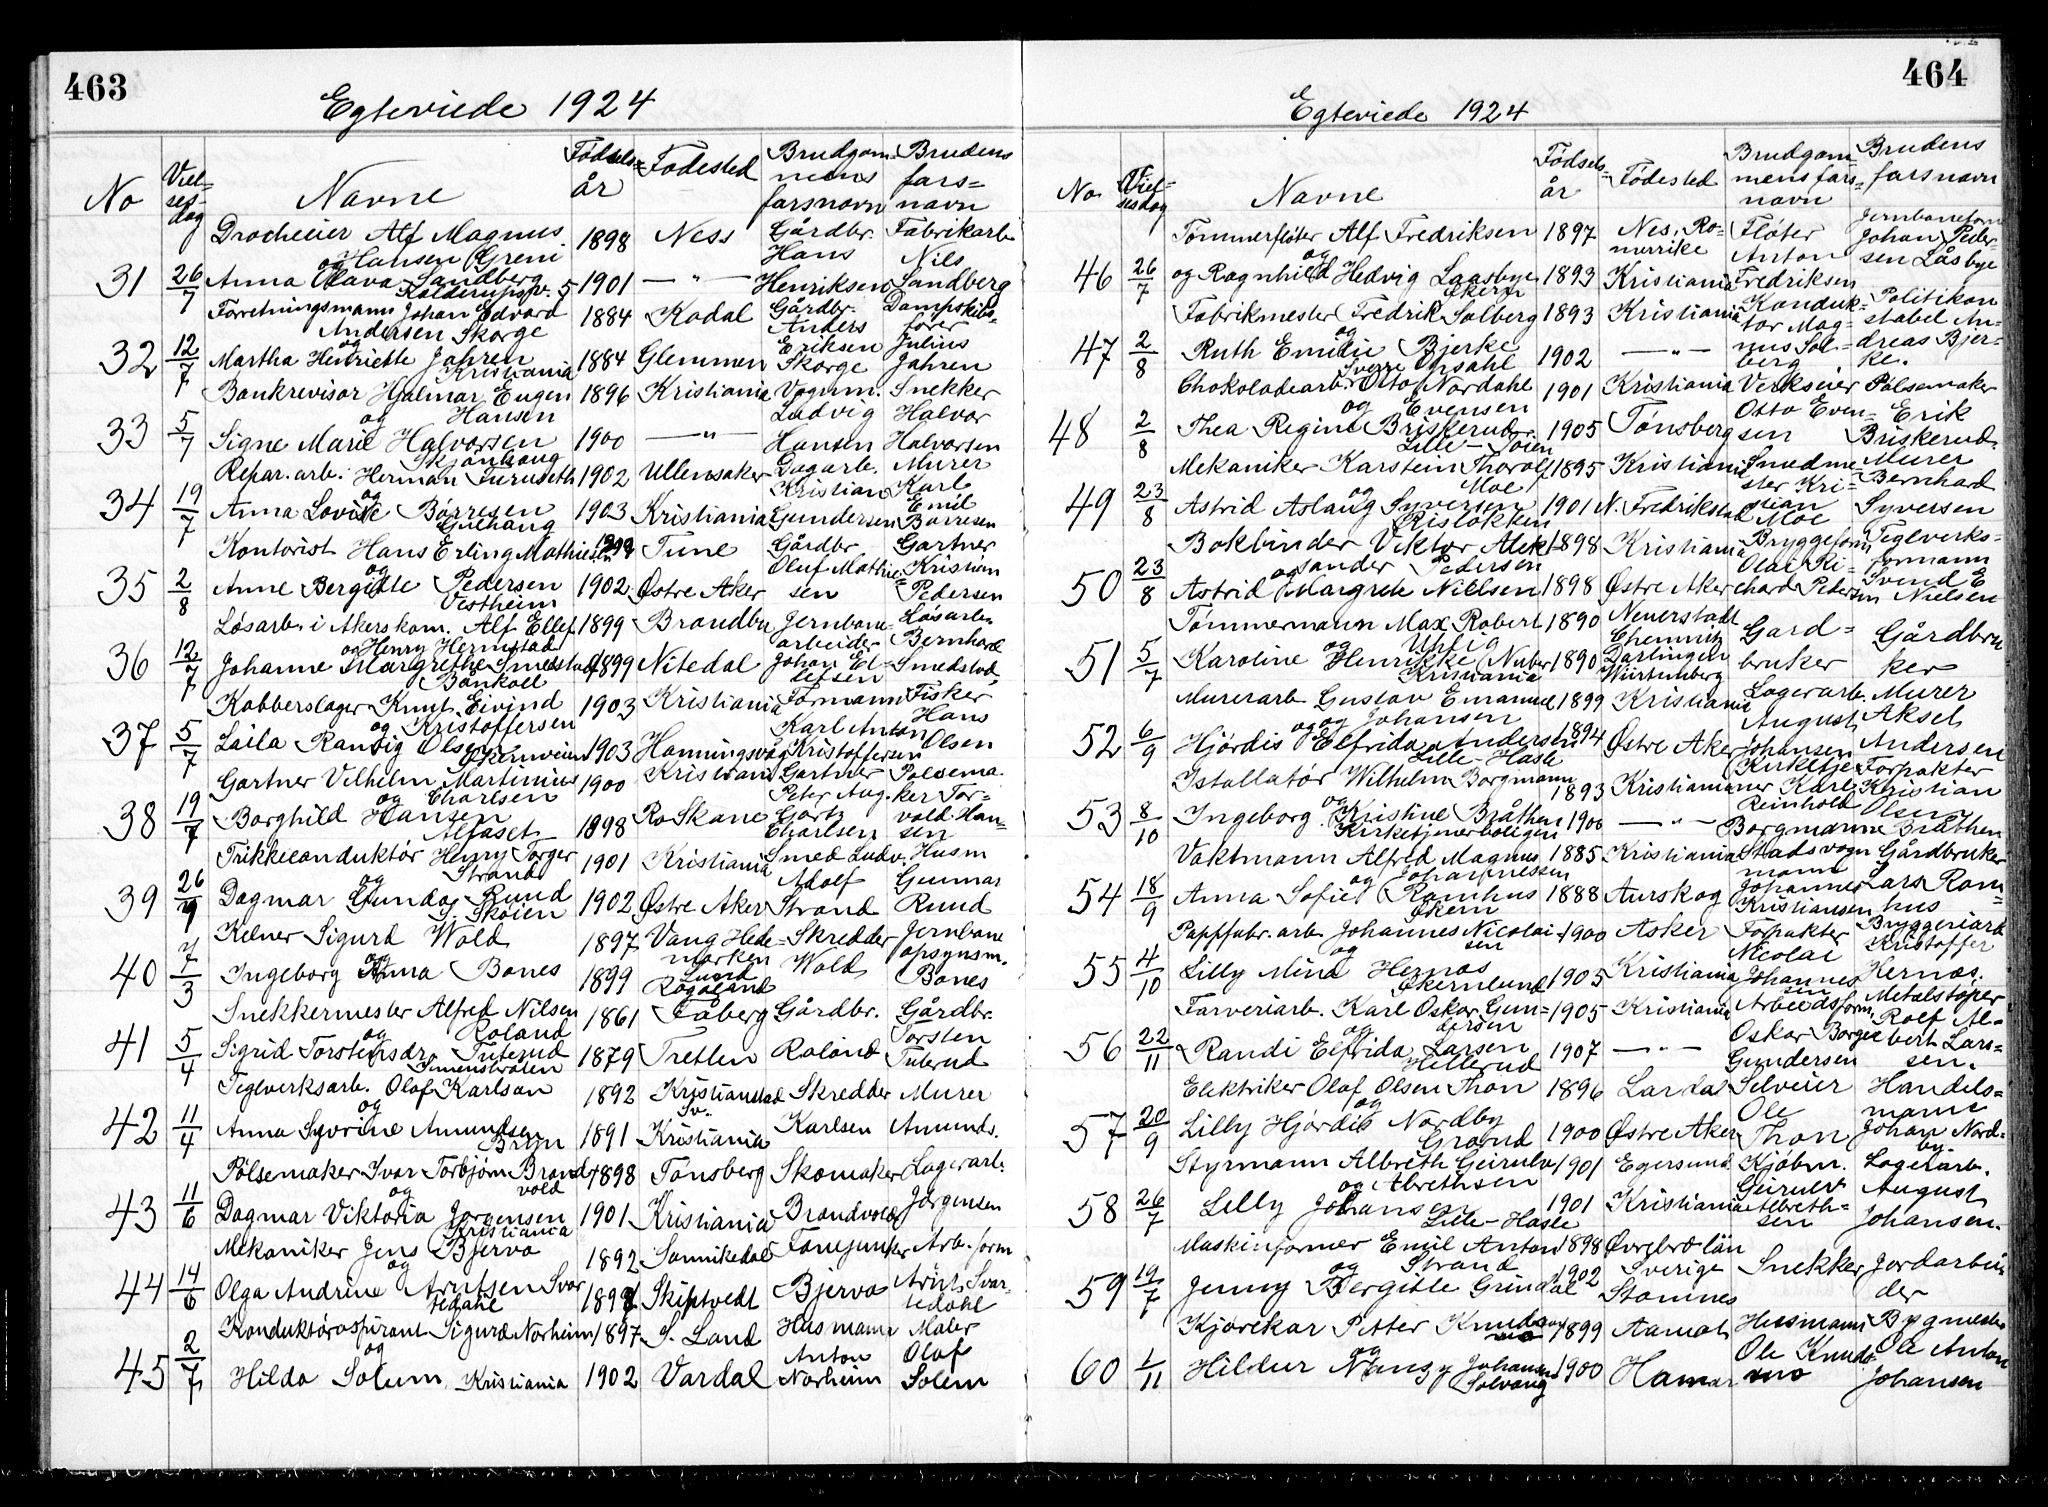 463
Egteviede 1924
No
Viel-
ses-
dag
Navne
Fødsels-
år
Fødested
Brudgom-
mens
farsnavn
Brudens
fars-
navn
Alf Magnus
Hansen Greni 1898 Ness Gårdbr. Hans Fabrikarb. Nils
31 26/7 og Anna Olava Sandberg 1901 — " — Henriksen Sandberg
Forretningsmann Johan Edvard
Andersen Skorge 1884 Kodal Gårdbr. Anders Dampskibs-
fører
32 12/7 og Martha Henriette Jahren Kristiania 1884 Glemmen Eriksen Skorge Julius Jahren
Bankrevisor Hjalmar Eugen
Hansen 1896 Kristiania Vognm. Ludvig Snekker Halvor
33 5/7 og Signe Marie Halvorsen 1900 — " — Hansen Halvorsen
Repar. arb. Herman Furuseth 1902 Ullensaker Dagarb. Kristian Murer Karl
34 19/7 og Anna Lovise Børresen 1903 Kristiania Gundersen Emil Børresen
Kontorist Hans Erling Mathiesen Tune Gårdbr Oluf Mathie- Gartner Kristian
35 2/8 og Anne Bergitte Pedersen Vestheim 1902 Østre Aker sen Pedersen
Løsarb. i Akers kom. Alf Ellef
Henry Hermstad 1899 Brandbu Jernbane-
arbeider Løsarb. Bernhard
36 12/7 og Johanne Margrethe Smedstad Bånkall 1899 Nitedal Johan El-
lefsen Smedstad
Kobberslager Knut Eivind
Kristoffersen 1903 Kristiania Formann Karl Anton Fisker Hans
37 5/7 og Laila Ranveig Olsen Økernveien 1903 Honningsvåg Kristoffersen Olsen
Gartner Vilhelm Martinius
Charlsen 1900 Kristiania Gartner Peter Aug. Pølsema-
ker Tor-
38 19/7 og Borghild Hansen Alfaset 1898 Ro Skåne Charlsen vald Han-
sen
Trikkeconduktør Henry Torger
Strand 1901 Kristiania Smed Ludv. Adolf Husm Gunnar
39 26/9 og Dagmar Gunda Ruud Skøien 1902 Østre Aker Strand Ruud
Kelner Sigurd Wold 1897 Vang Hede-
marken Skredder Wold Jernbane
opsynsm.
40 7/3 og Ingeborg Anna Bones 1899 Rogaland Bones
Snekkermester Alfred Nilsen
Roland 1861 Fåberg Gårdbr. Gårdbr. Torsten
41 5/4 og Sigrid Torstensdr. Tuterud 1879 Tretten Roland Tuterud
Teglverksarb. Olof Karlson 1892 Kristianstad Sv. Skredder Murer
42 11/4 og Anna Syvrine Amundsen Bryn 1891 Kristiania Karlsen Amunds.
Pølsemaker Ivar Torbjørn Brand-
vold 1898 Tønsberg Skomaker Lagerarb.
43 11/6 og Dagmar Viktoria Jørgensen Kristiania 1901 Kristiania Brandvold Jørgensen
Mekaniker Jens Bjervo 1892 Sannikedal Arb. form
44 14/6 og Olga Andrine Arntsen Svar
tedahl Skiptvedt Bjervo Arnt Svar-
tedahl
Konduktøraspirant Sigurd Norheim 1897 S. Land Husmann Anton Maler Olaf
45 2/7 og Hilda Solum Kristiania 1902 Vardal Norheim Solem
464
Egteviede 1924
No
Viel-
sesdag
Navne
Fødsels-
år
Fødested
Brudgom
mens fars-
navn
Brudens
farsnavn
Tømmerfløter Alf Fredriksen 1897 Nes, Ro-
merrike Fløter Anton Jernbaneform
Johan Peder-
46 26/7 og Ragnhild Hedvig Laasbye Økern 1893 Kristiania Fredriksen sen Låsbye
Fabrikmester Fredrik Solberg 1893 Kristiania Konduk-
tør Mag- Politikon
stabel An-
47 2/8 og Ruth Emilie Bjerke Opsahl 1902 — " — nus Sol-
berg dreas Bjer-
ke.
Chokoladearb. Sverre Otto Nordahl
Evensen 1901 Kristiania Verkseier Otto Even- Pølsemaker Erik
48 2/8 og Thea Regine Briskerud Lille-Tøien 1905 Tønsberg sen Briskerud
Mekaniker Karstein Thoralf
Moe 1895 Kristiania Smedme-
ster Kri- Murer Bernhard
49 23/8 og Astrid Aslaug Syversen Risløkken 1901 N. Fredrikstad stian Moe Syversen
Bokbinder Viktor Alek-
sander Pedersen 1898 Kristiania Bryggeform
Olai Ri- Teglverks-
formann
50 23/8 og Astrid Margrete Nielsen 1898 Østre Aker chard Pedersen Svend E Nielsen
Tømmermann Max Robert
Uhlig 1890 Neuerstadt Chemnitz Gard- Gårdbru
51 5/7 og Karoline Henrikke Nuber Kristiania 1890 Würtenberg bruker ker
Murerarb. Gustav Emanuel
Johansen 1899 Kristiania Lagerarb. August Murer Aksel
52 6/9 og Hjørdis Elfrida Andersen Lille-Hasle 1894 Østre Aker Johansen Andersen
Istallatør Wilhelm Borgmann 1893 Kristiania Kirketje-
ner Karl Forpakter Kristian
53 8/10 og Ingeborg Kristine Bråthen Kirketjenerboligen 1900 — " — Reinhold Borgmann Olsen Bråthen
Vaktmann Alfred Magnus 1885 Kristiania Stadsvogn
mann Gårdbruker
54 18/9 og Anna Sofie Ramhus Økern 1888 Aurskog Johannes Kristiansen Lars Ram-
hus
Pappfabr. arb. Johannes Nicolai-
sen 1900 Asker Forpakter Nicolai Bryggeriarb Kristoffer
55 4/10 og Lilly Mina Hernæs Økernlund 1905 Kristiania Johannes
sen Hernæs.
Farveriarb. Karl Oskar Gun-
dersen 1905 Kristiania Arbeidsform Oskar Borge Metalstøper Rolf Al-
56 22/11 og Randi Elfrida Larsen Hillerud 1907 — " — Gundersen bert Lars-
sen.
Elektriker Olaf Olsen Thon 1896 Lardal Selveier Ole Handels-
mann
57 20/9 og Lilly Hjørdis Nordby Grand 1900 Østre Aker Thon Johan Nord-
by
Styrmann Albreth Geirulv
Albrethsen 1901 Egersund Kjøbm. Geirulv Lagerarb. August
58 26/7 og Lilly Johansen Lille-Hasle 1901 Kristiania Albreth-
sen Johansen.
Maskinformer Emil Anton
Strand 1898 Sverige Snekker Jordarbei
59 19/7 og Jenny Bergitte Grindal 1902 Stamnes der
Kjørekar Petter Knudsen 1899 Aamot Husmann Ole Knud- Bygmester Ole Anton
60 1/11 og Hildur Nanzy Johansen Solvang 1900 Hamar Johansen